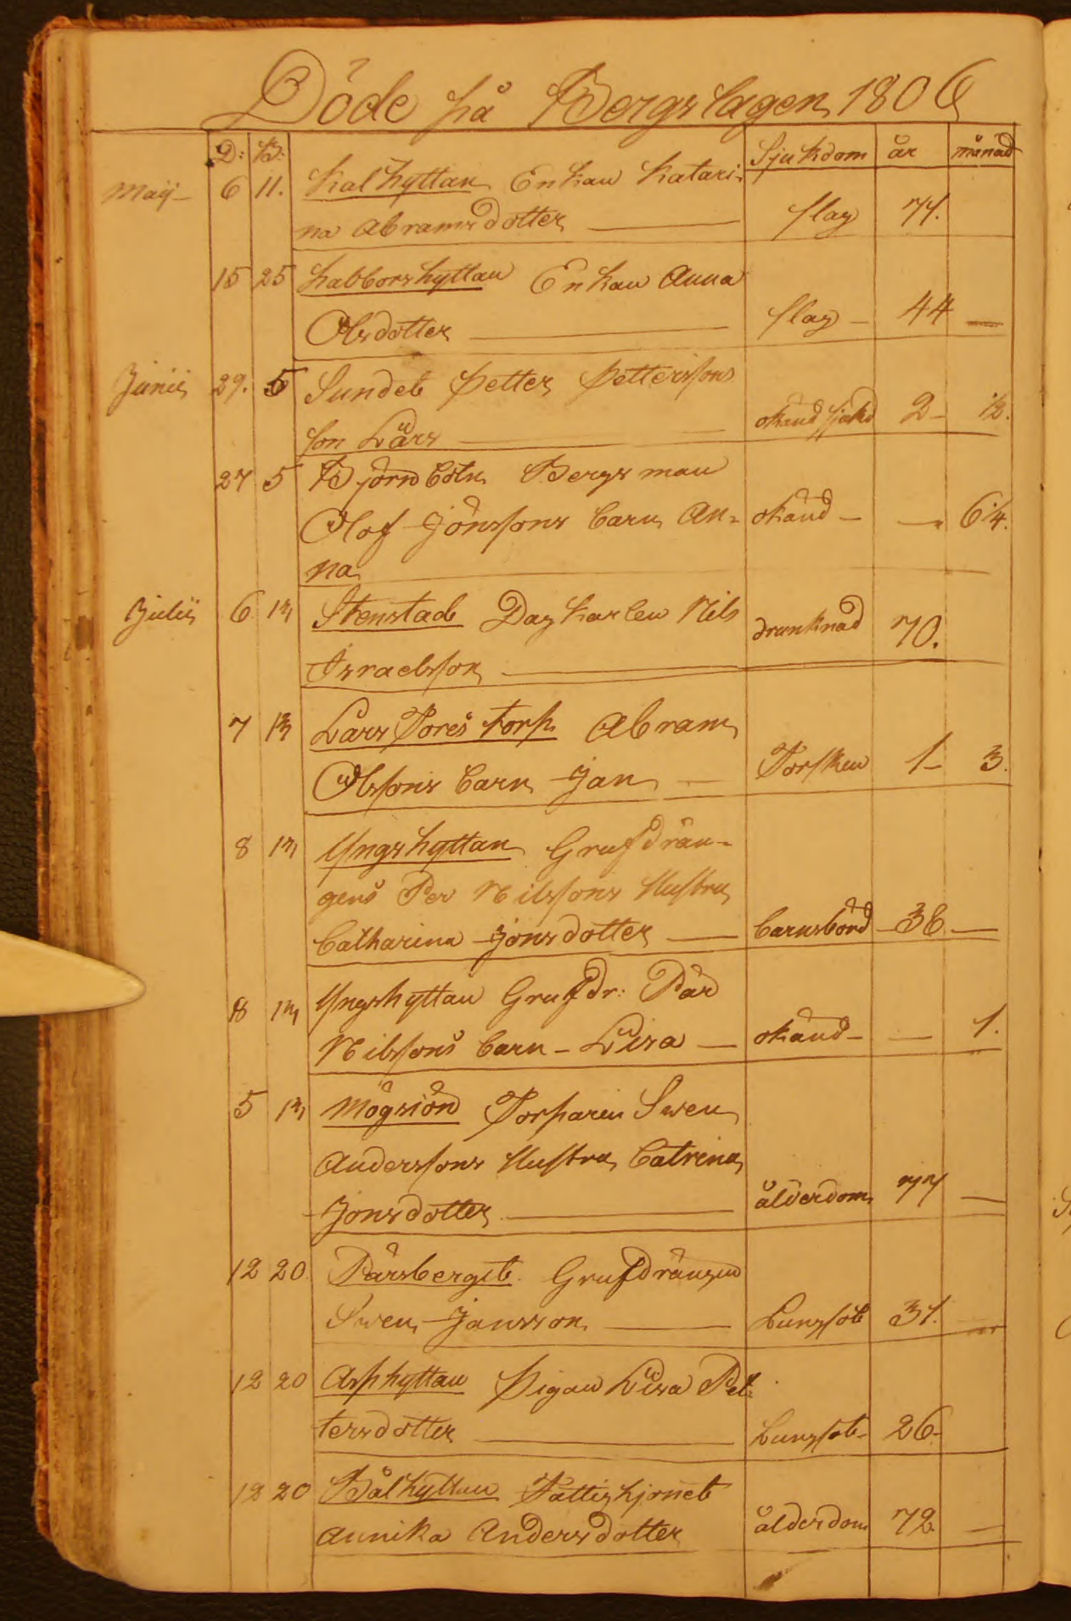 Döde på Bergslagen 1806
D: B: Sjukdom år månad
Maij 6 11. Kalhyttan Enkan Katari-
na Abramsdotter slag 71.
15 25 Habborshyttan Enkan Anna
Olsdotter slag 44
Junii 29. 5 Sundet Petter Pettersson
son Lars okänd sjukd 2 1/2.
27 5 Björnhöln Bergsman
Olof Jönssons barn An- okänd 6 1/4.
na
Julii 6 13 Stenstad Dagkarlen Nils drunknad 70.
Israelsson
7 13 Lars Tores torp Abram
Olssons barn Jan Torsken 1 3.
8 13 Yngshyttan Grufdrän-
gens Per Nilssons Hustru
Catharina Jonsdotter barnsbörd 36
8 13 Yngshyttan Grufdr: Pär
Nilssons barn Lisa okänd 1.
5 13 Mögsiön Torparen Swen
Anderssons Hustru Catrina
Jonsdotter ålderdom 77
12 20. Pärsberget Grufdrängen
Swen Jansson Lungsot 31.
12 20 Asphyttan Pigan Lisa Pet-
tersdotter Lungsot 26
12 20 Bålhyttan Fattighjonet
Annika Andersdotter ålderdom 72